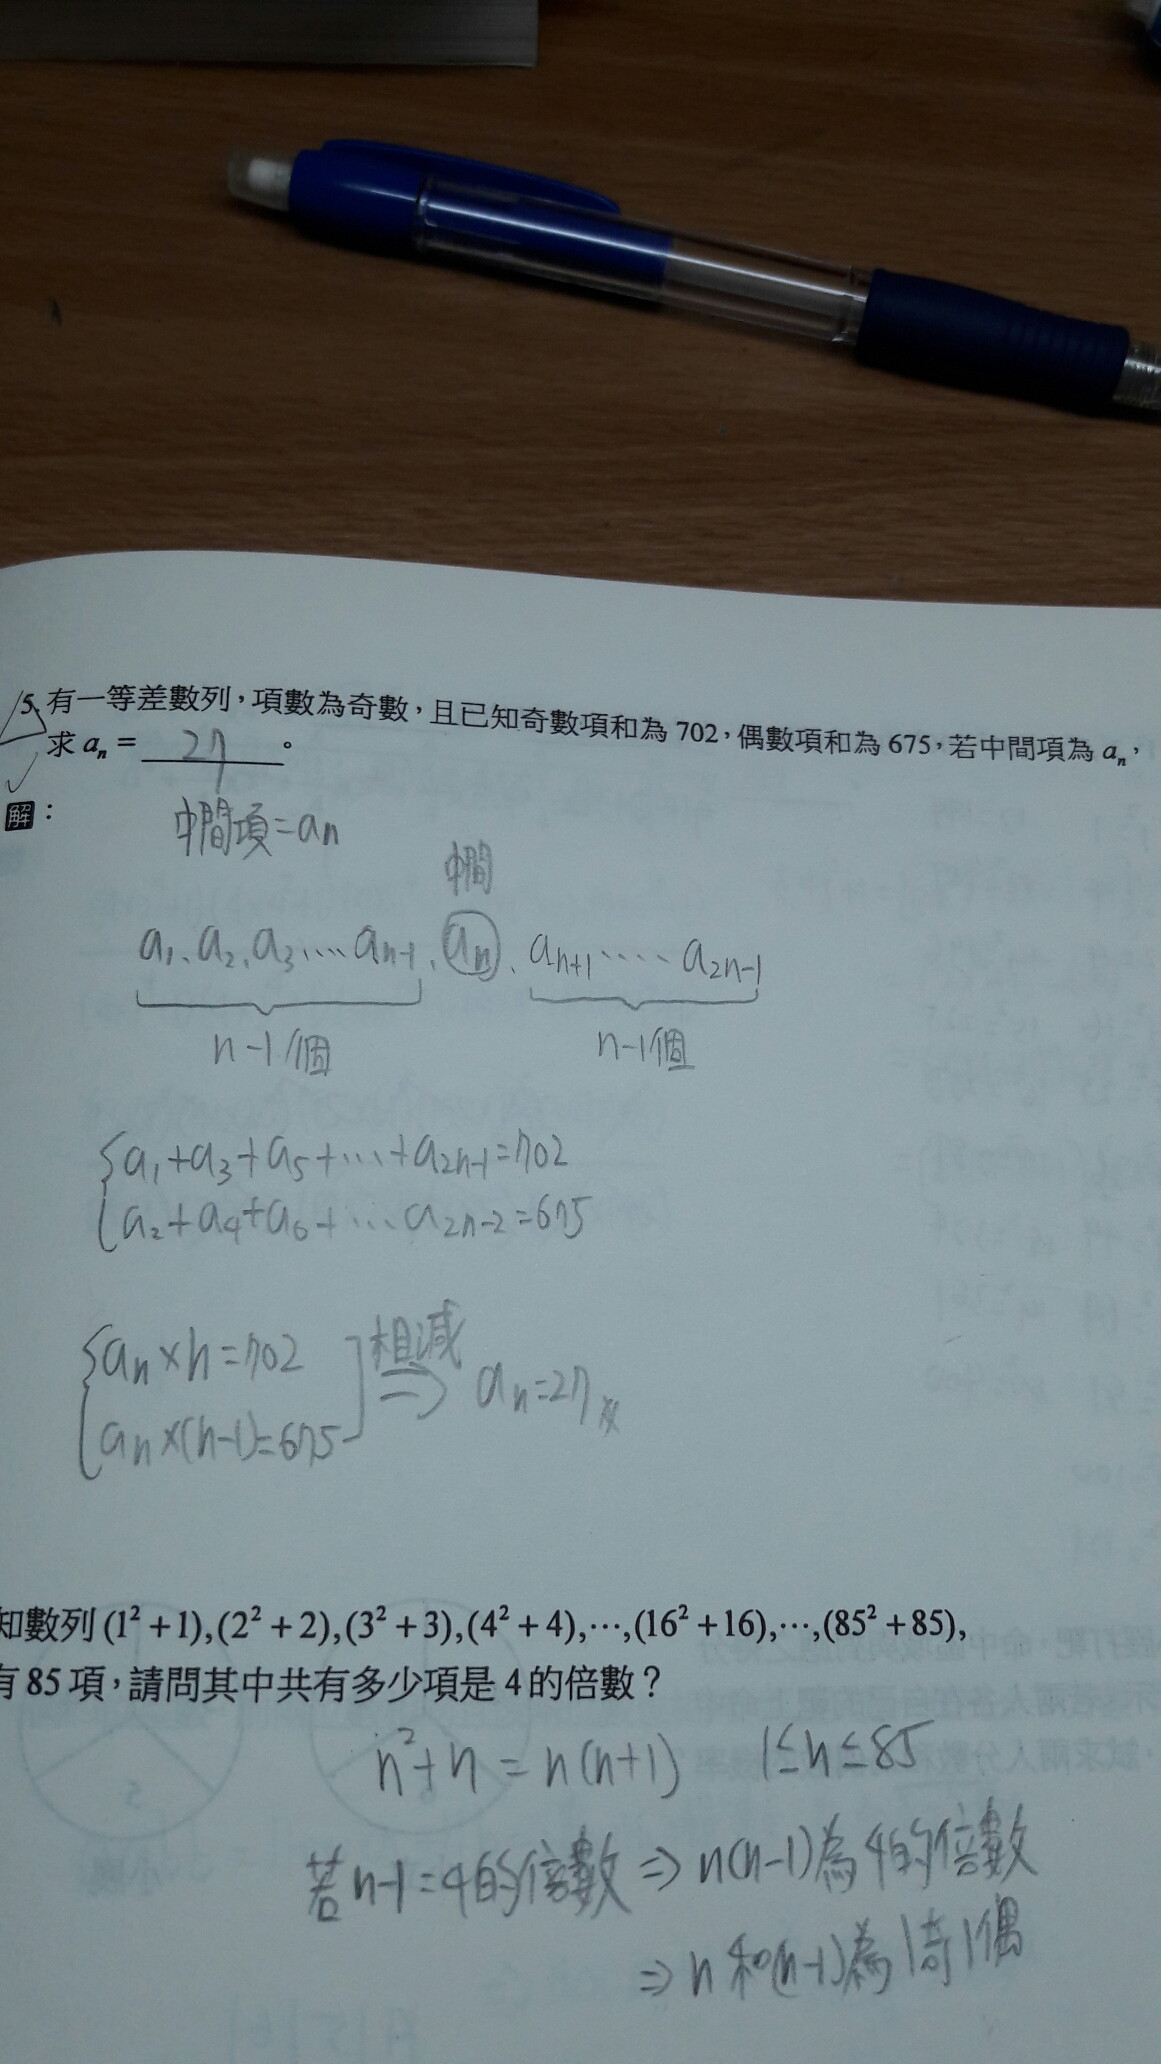 5. 有一等差數列，項數為奇數，且已知奇數項和為 702，偶數項和為 675，若中間項為 aₙ，
求 aₙ = 27 。
解：
中間項=aₙ
中間
a₁、a₂、a₃....aₙ₋₁、aₙ、aₙ₊₁.....a₂ₙ₋₁
n-1個 n-1個
a₁+a₃+a₅+...+a₂ₙ₋₁=702
a₂+a₄+a₆+...a₂ₙ₋₂=675
aₙ×n=702
相減 ⇒ aₙ=27
aₙ×(n-1)=675
知數列 (1²+1),(2²+2),(3²+3),(4²+4),⋯,(16²+16),⋯,(85²+85),
有 85 項，請問其中共有多少項是 4 的倍數？
n²+n = n(n+1) 1≤n≤85
若n-1=4的倍數 ⇒ n(n-1)為4的倍數
⇒ n和(n-1)為1奇1偶